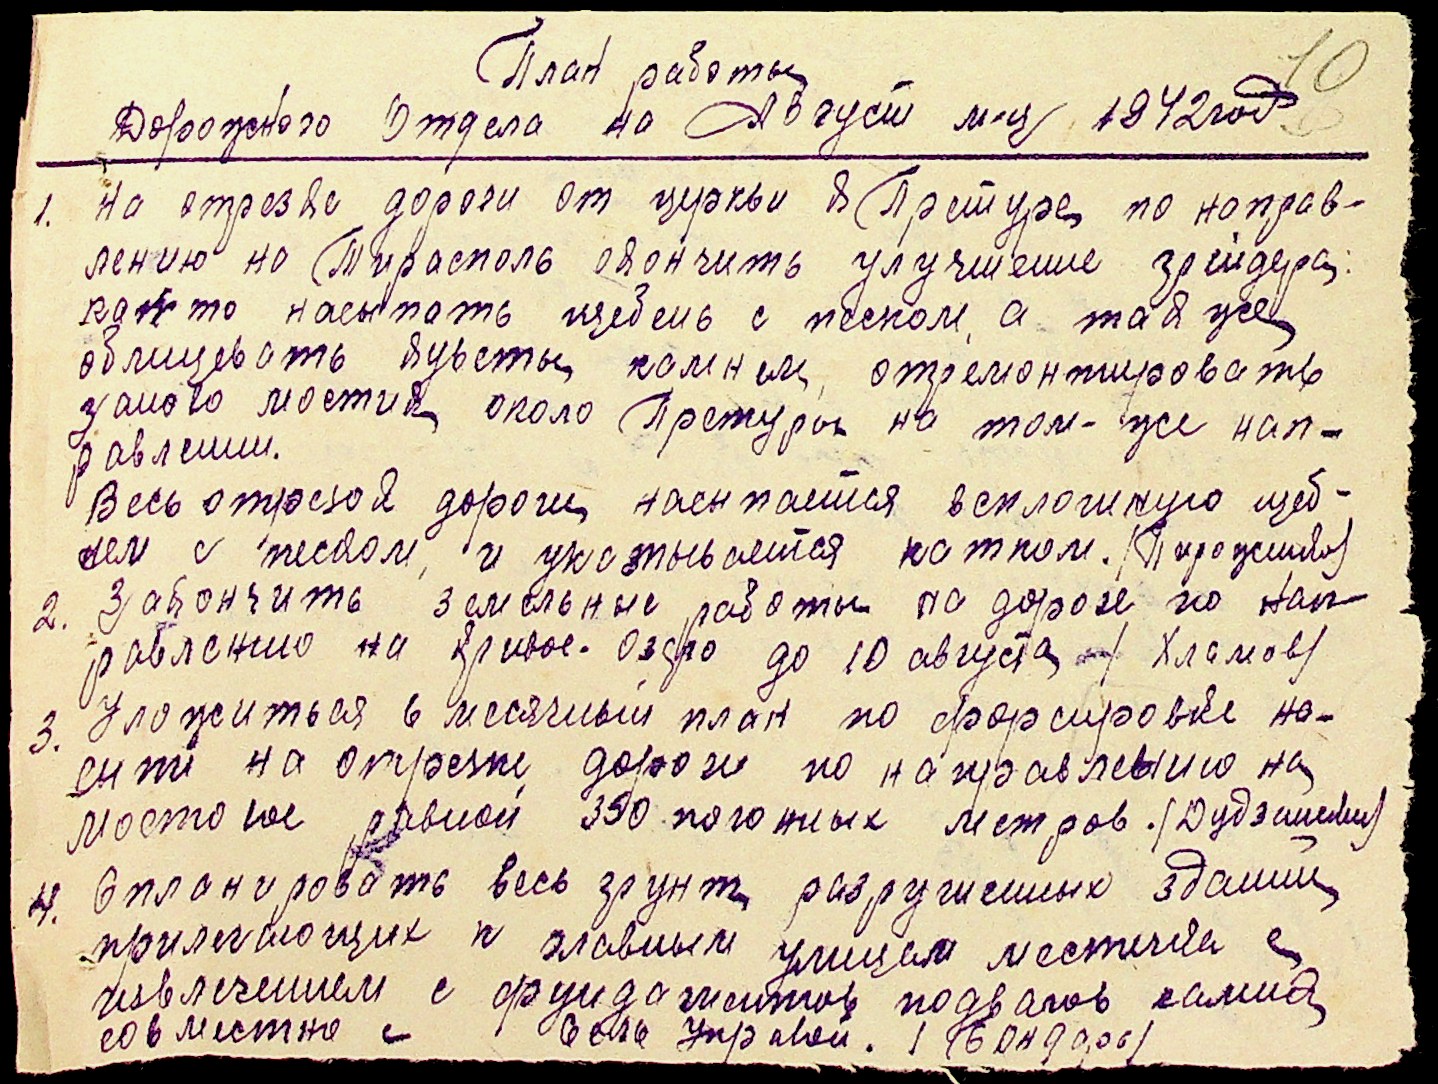 План работы
10
Дорожного Отдела на Август м-ц 1942 год
1. На отрезке дороги от церкви к Претуре, по направ-
лению на Тирасполь окончить улучшение грейдера:
как то насыпать щебень с песком, а так же
облицевать кюветы камнем, отремонтировать
мостик около Претуры на том-же нап-
равлении.
Весь отрезок дороги насыпается всплошную щеб-
нем с песком, и укатывается катком. /Пирожков/
2. Закончить земельные работы на дороге по нап-
равлению на Кривое-Озеро до 10 августа - / Хламов/
3. Уложиться в месячный план по форсировке на-
сыпи на отрезке дороги по направлению на
Мостовое равной 350 погонных метров. /Дудз
4. Спланировать весь грунт разрушенных зданий
прилегающих к главным улицам местечка с
извлечением с фундаментов подвалов камня
совместно с Сель Управой. / Бондарь/